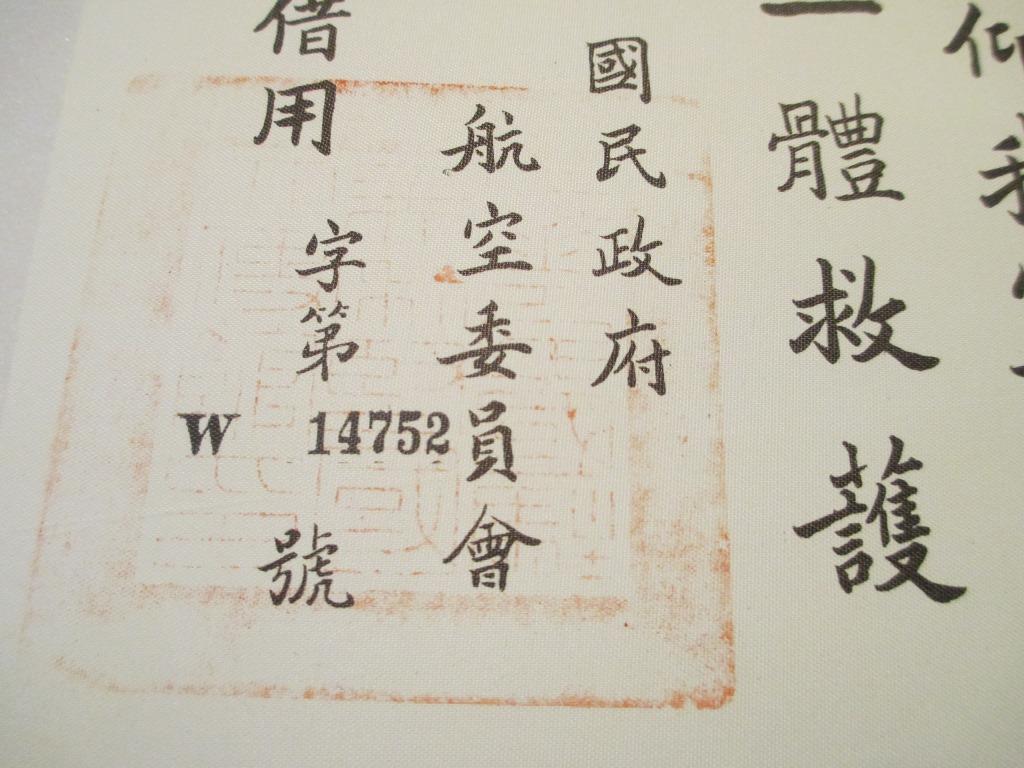 仰我
一體救護
國民政府
航空委員會
借用 字第 號
W 14752